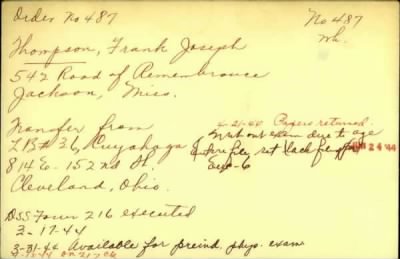 Order No 487
No 487
wh.
Thompson, Frank Joseph
542 Road of Remembrance
Jackson, Miss.
4-21-44 Papers returned.
Transfer from
LB#36, Cuyahoga
814 E. 152nd St.
Cleveland, Ohio.
out exam due to age
24 '44
DSS Form 216 executed
3-17-44
3-31-44 Available for preind. phys. exam